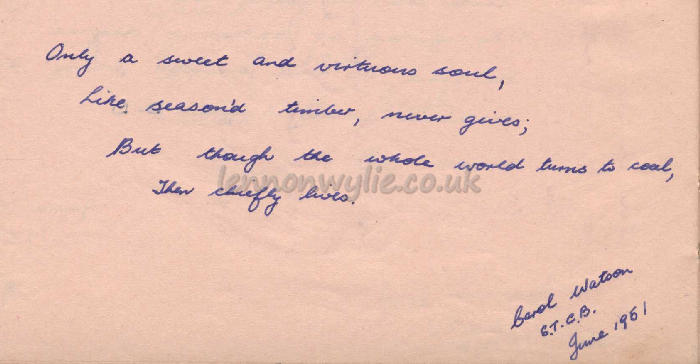 Only a sweet and virtuous soul,
Like season'd timber, never gives;
But though the whole world turns to coal,
Then chiefly lives.
lennonwylie.co.uk
Carol Watson
S.T.C.B.
June 1961